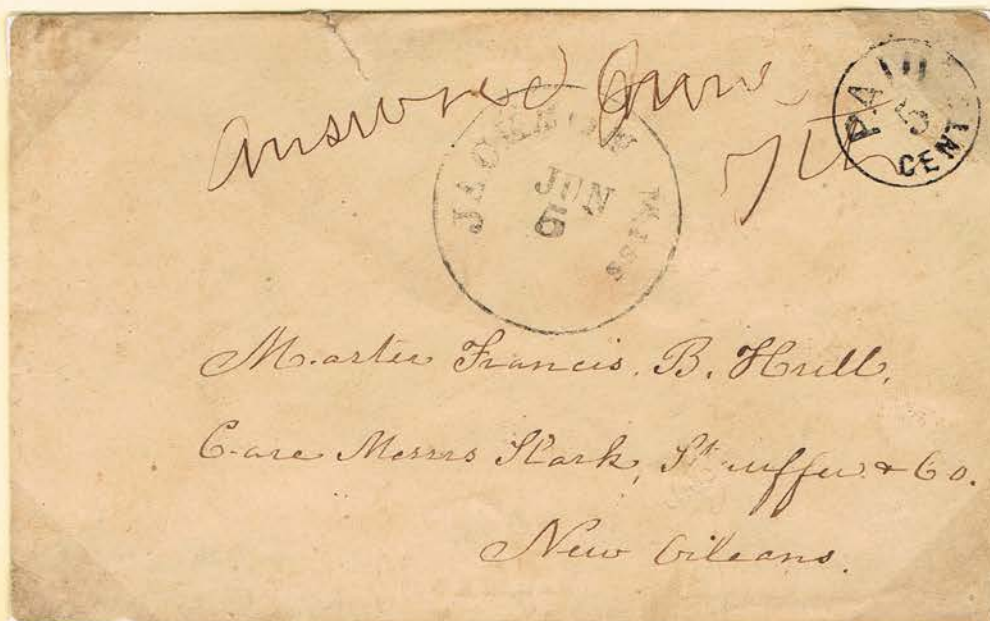 answered June
7th
PAID
5
CENTS
JACKSON
MISS
JUN
5
Master Francis. B. Hull,
Care Messrs Stark, Stauffer & Co.
New Orleans.